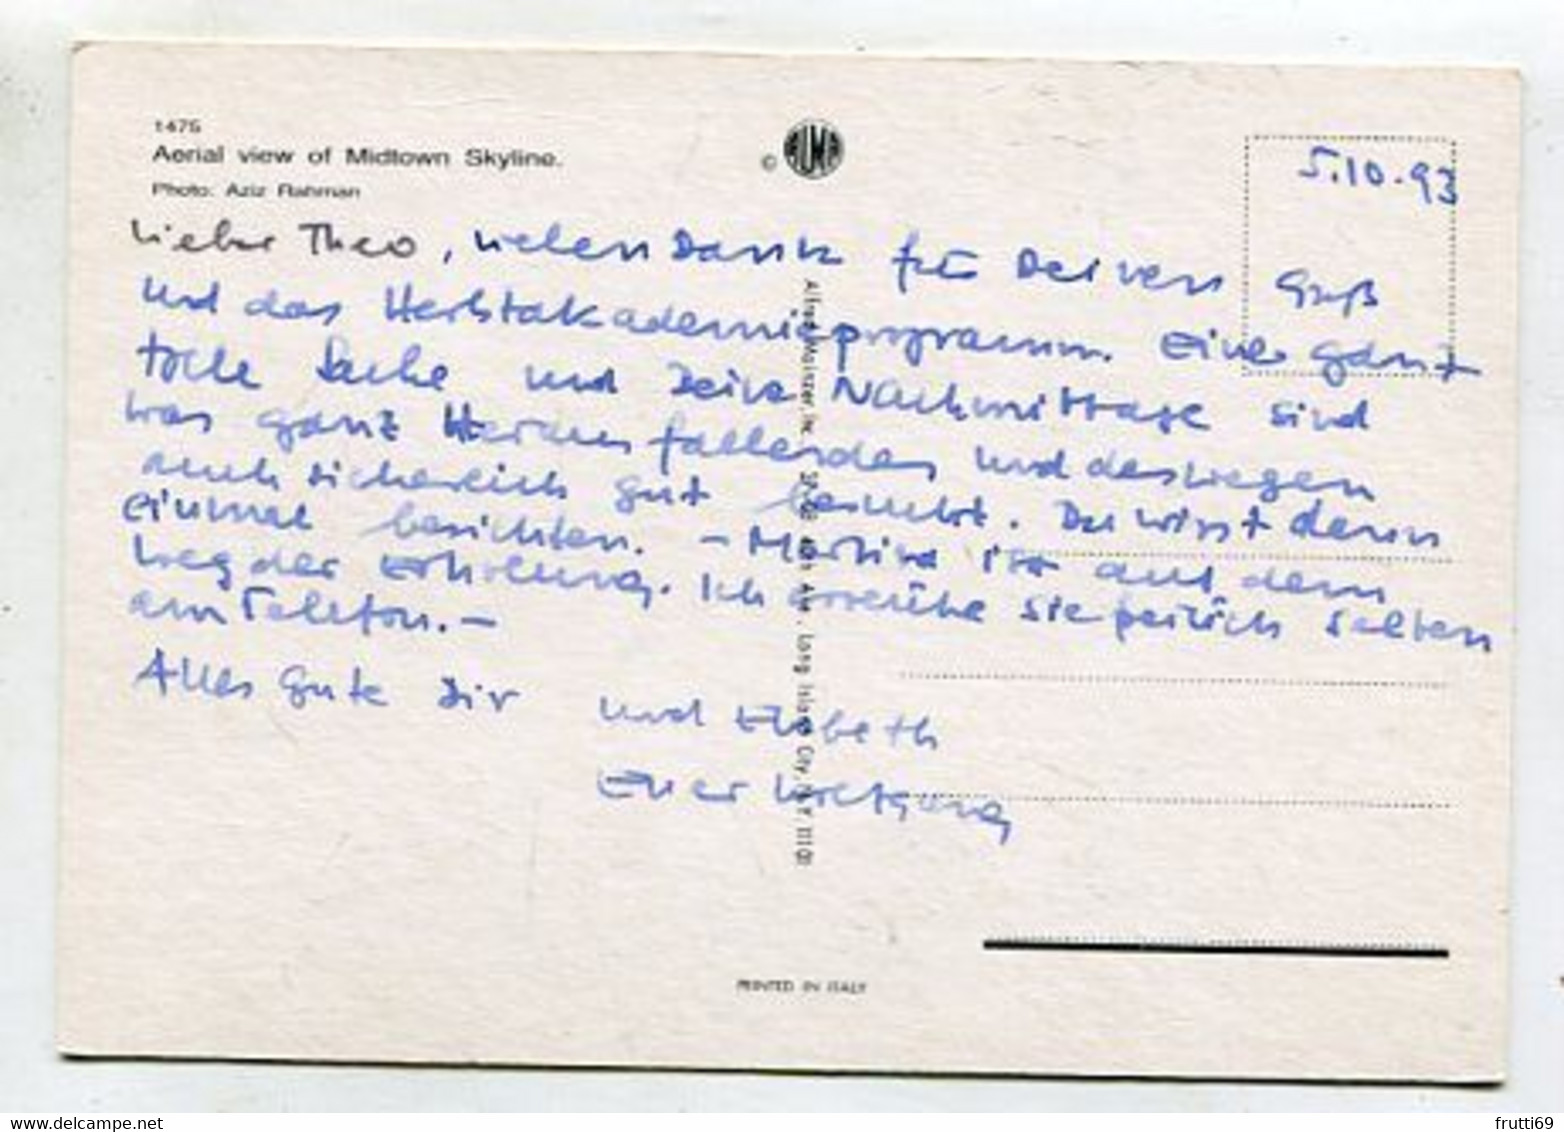 1475
Aerial view of Midtown Skyline.
Photo: Aziz Rahman
©
ALMA
5.10.93
Lieber Theo, vielen Dank für Deinen Gruß
und das Herbstakademieprogramm. Eine ganz
tolle Sache und Deine Nachmittage sind
was ganz Herausfallendes und deswegen
auch sicherlich gut besucht. Du wirst denn
einmal berichten. – Martina ist auf dem
Weg der Erholung. Ich erreiche sie freilich selten
am Telefon. –
Alles Gute Dir
und Elsbeth
Euer Wolfgang
Alfred Mainzer, Inc. Ave., Long Island City, N.Y. 11101
PRINTED IN ITALY
www.delcampe.net
frutti69